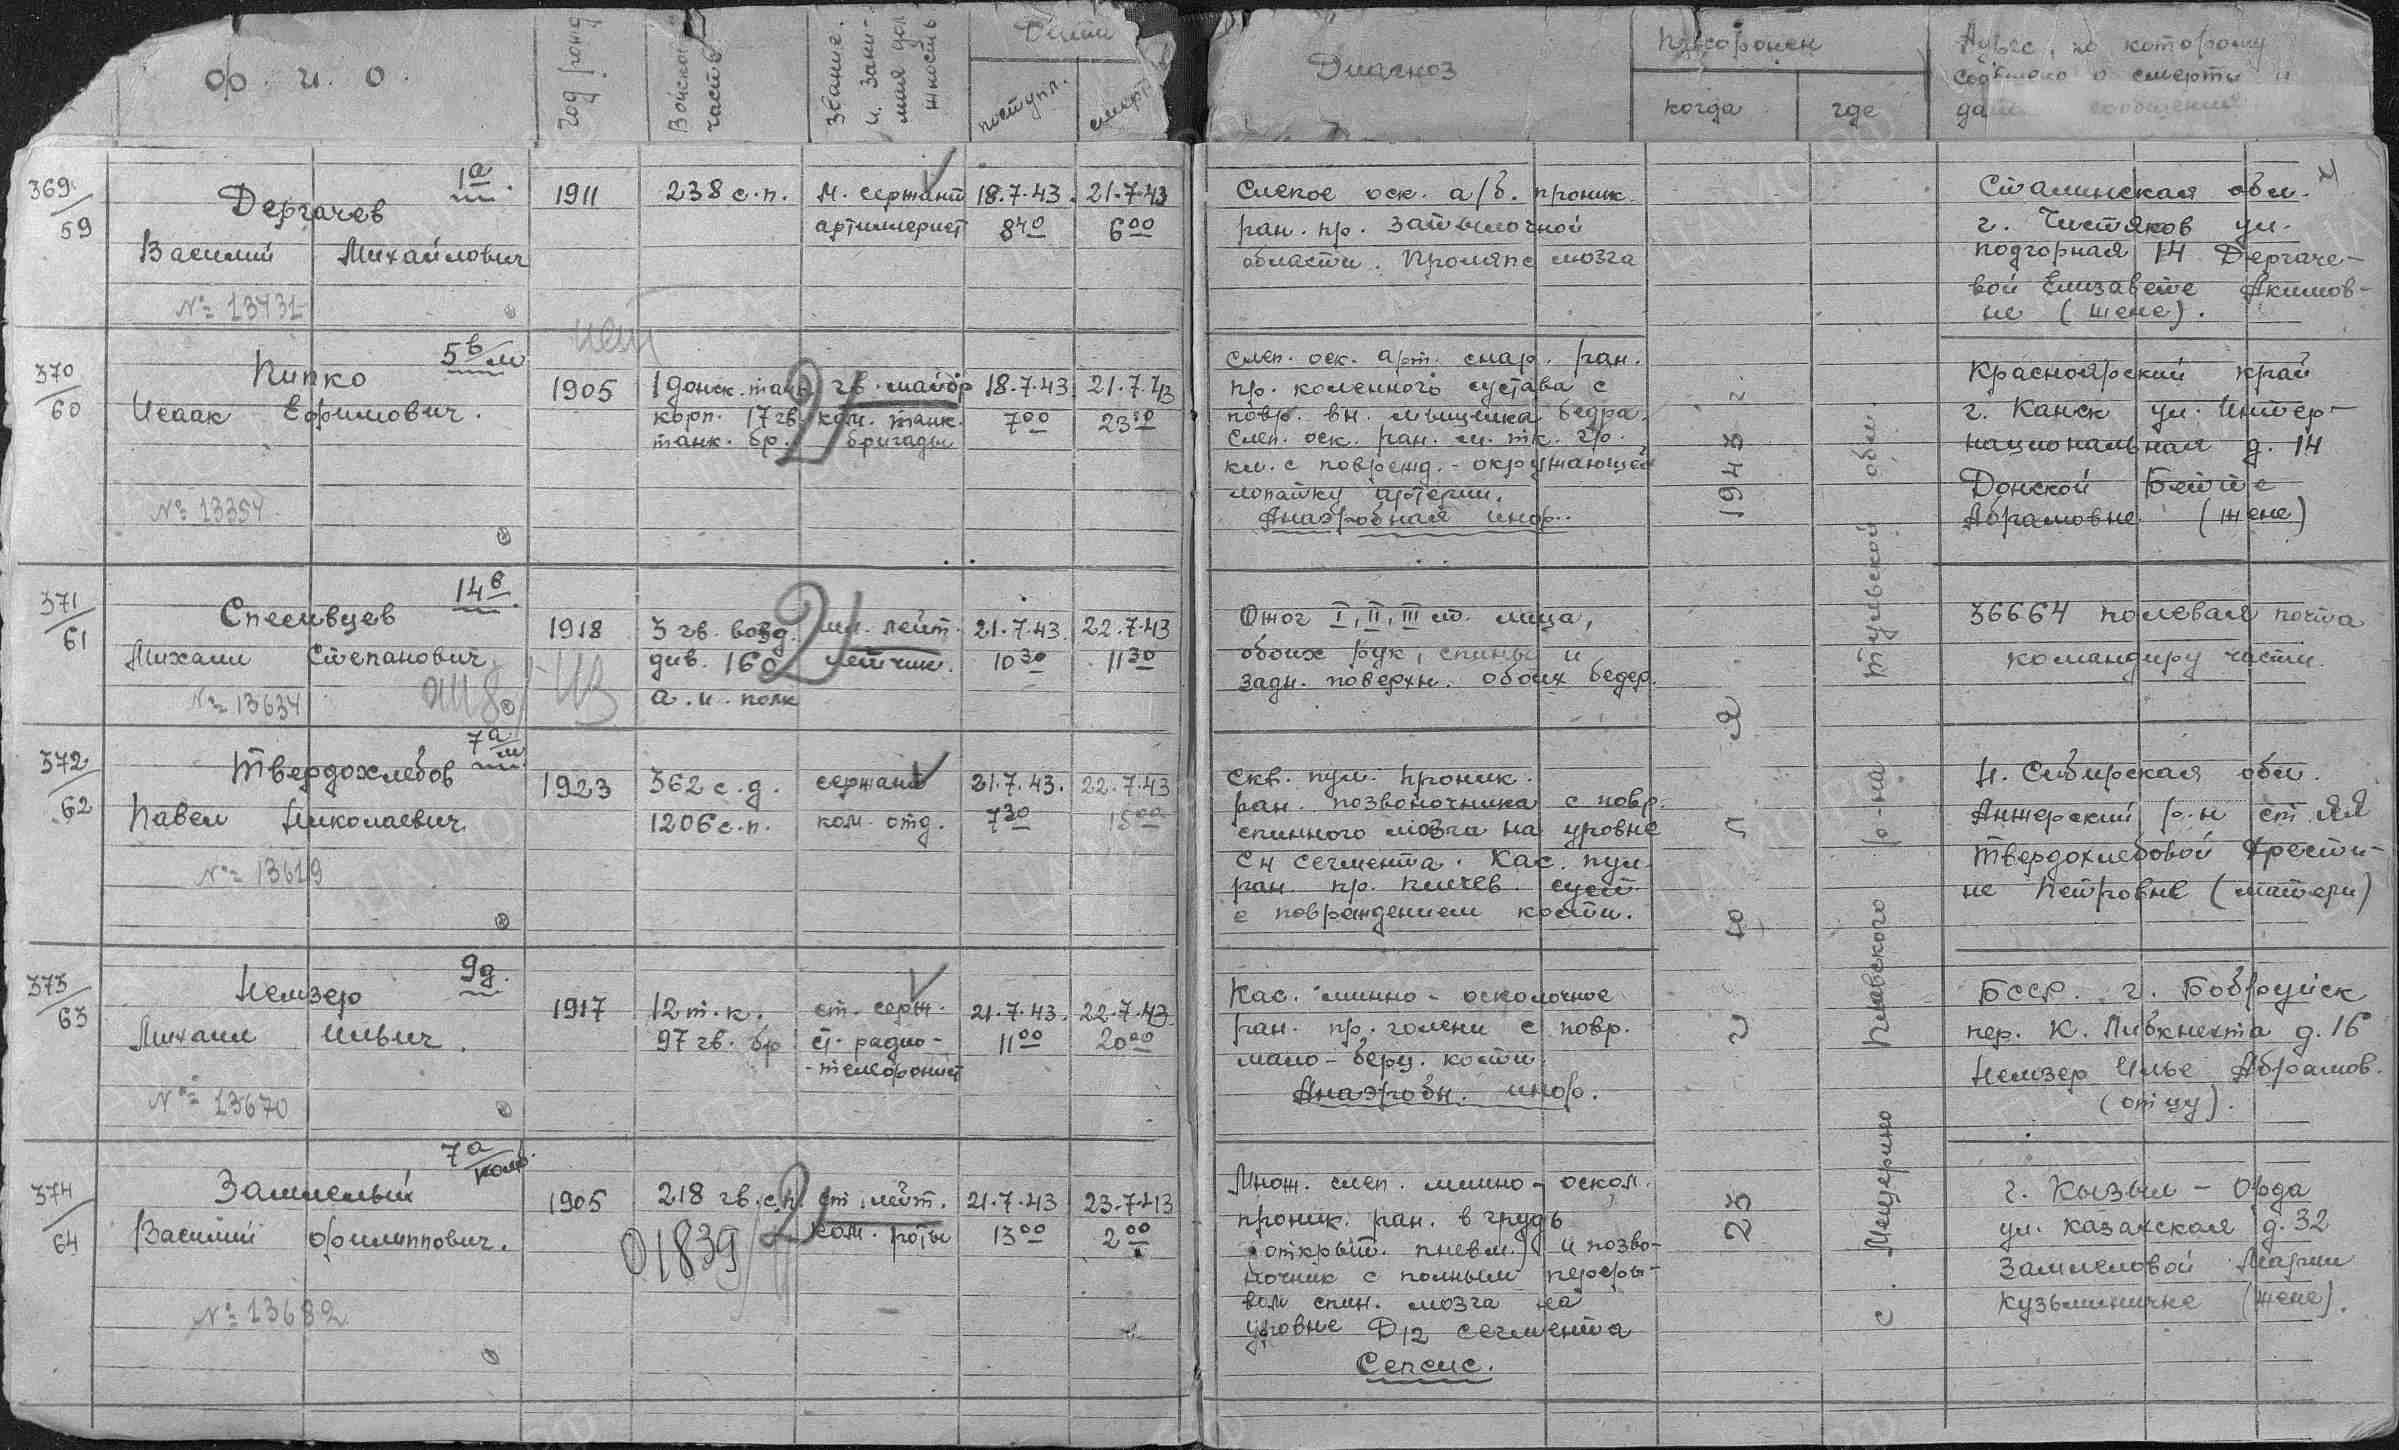 Ф. И. О.
Год рожд
Войсков. часть
Звание. и зани-
мая дол
жность
Даты
поступл.
смерт
Диагноз
Похоронен
когда
где
Адрес, по которому
сообщено о смерти и
дата сообщения
369/59
1а
Дергачев
Василий Михайлович
№ 13431
1911
238 с.п.
м. сержант
артиллерист
18.7.43
8 40
21.7.43
6 00
Слепое оск. а/б. проник.
ран. пр. затылочной
области. Проляпс мозга
Сталинская обл.
г. Чистяков ул.
подгорная 14 Дергаче-
вой Елизавете Акимов-
не (жене).
370/60
5в/м
Пипко
Исаак Ефимович.
№ 13354
1905
1 донск. танк
корп. 17 гв.
танк. бр.
гв. майор
ком. танк.
бригады
18.7.43
7 00
21.7.43
23 50
Слеп. оск. арт. снар. ран.
пр. коленного сустава с
повр. вн. мыщелка бедра.
Слеп. оск. ран. м. тк. гр.
кл. с поврежд. - окружающей
лопатку артерии.
Анаэробная инф.
Красноярский край
г. Канск ул. Интер-
национальная д. 14
Донской Бетте
Абрамовне (жене)
371/61
14в
Спесивцев
Михаил Степанович
№ 13634
1918
3 гв. возд.
див. 160
а.и. полк
мл. лейт.
летчик.
21.7.43
10 30
22.7.43
11 30
Ожог I, II, III ст. лица,
обоих рук, спины и
задн. поверхн. обоих бедер.
36664 полевая почта
командиру части.
372/62
7а/м
Твердохлебов
Павел Николаевич
№ 13619
1923
362 с.д.
1206 с.п.
сержант
ком. отд.
21.7.43.
7 30
22.7.43
15 00
Скв. пул. проник.
ран. позвоночника с повр.
спинного мозга на уровне
С4 сегмента. Кас. пул.
ран. пр. плечев. суст.
с повреждением кости.
Н. Сибирская обл.
Анжерский р-н ст. Яя
Твердохлебовой Хрести-
не Петровне (матери)
373/63
9д.
Немзер
Михаил Ильич.
№ 13670
1917
12 т.к.
97 гв. бр
ст. серж.
ст. радио-
-телефонист
21.7.43.
11 00
22.7.43
20 00
Кас. минно-осколочное
ран. пр. голени с повр.
мало-берц. кости.
Анаэробн. инф.
БССР. г. Бобруйск
пер. К. Либкнехта д. 16
Немзер Илье Абрамов.
(отцу).
374/64
7а/ком.
Замлелый
Василий Филиппович.
№ 13682
1905
218 гв. с.п.
01839
ст. лейт.
ком. роты
21.7.43
13 00
23.7.43
2 00
Множ. слеп. минно-оскол.
проник. ран. в грудь
(открыт. пневм.) и позво-
ночник с полным переры-
вом спин. мозга на
уровне Д12 сегмента
Сепсис.
г. Кызыл-Орда
ул. казахская д. 32
Замлеловой Марии
Кузьминичне (жене).
23 июля 1943 г.
с. Мещерино Плавского р-на Тульской обл.